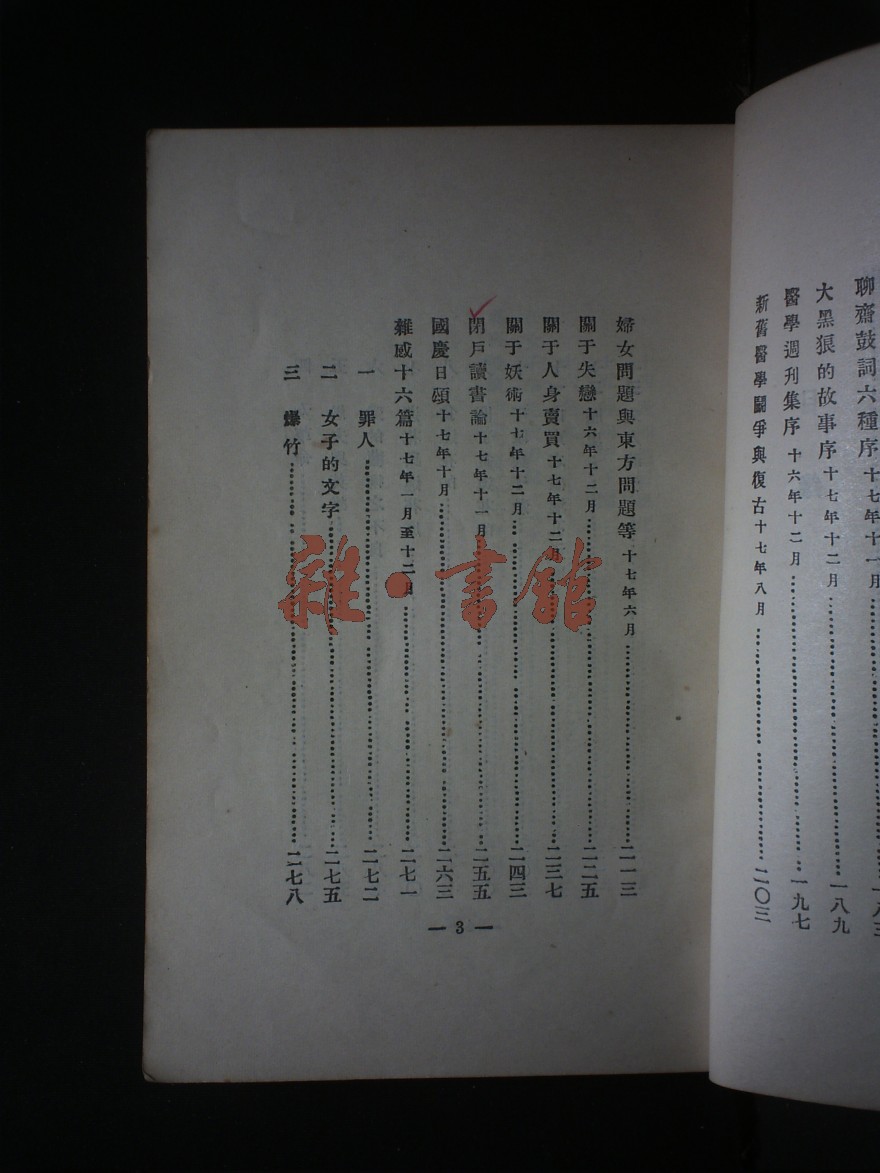 聊齋鼓詞六種序 十七年十一月 一八三
大黑狼的故事序 十七年十二月 一八九
醫學週刊集序 十六年十二月 一九七
新舊醫學鬭爭與復古 十七年八月 二〇三
婦女問題與東方問題等 十七年六月 二一三
關于失戀 十六年十二月 二二五
關于人身賣買 十七年十二月 二三七
關于妖術 十七年十二月 二四三
閉戶讀書論 十七年十一月 二五五
國慶日頌 十七年十月 二六三
雜感十六篇 十七年一月至十二月 二七一
一 罪人 二七二
二 女子的文字 二七五
三 爆竹 二七八
— 3 —
雜·書館